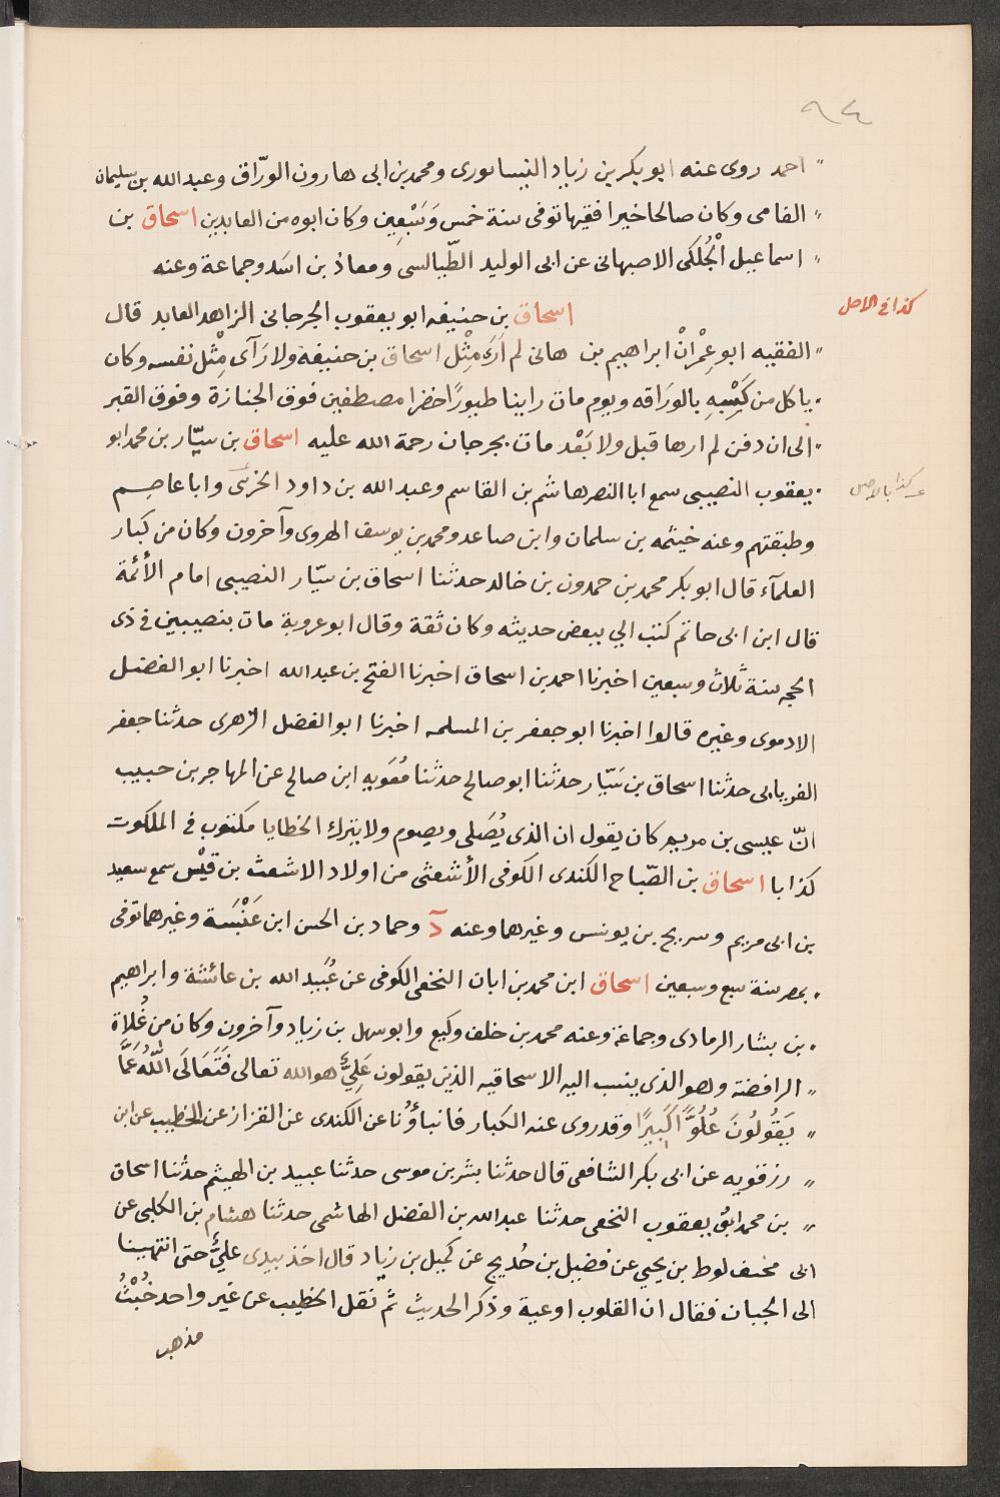 ٩٤
" احمد روى عنه ابو بكر بن زياد النيسابورى ومحمد بن ابى هارون الورّاق وعبد الله بن سليمان
" الفامى وكان صالحا خيرا فقيها توفى سنة خمس وَسَبْعِين وكان ابوه من العابدين اسحاق بن
" اسماعيل الْجُلَكى الاصبهانى عن ابى الوليد الطّيالسى ومعاذ بن اسَد وجماعة وعنه
كذا فى الاصل
اسحاق بن حنيفه ابو يعقوب الجرجانى الزاهد العابد قال
" الفقيه ابو عِمْرانْ ابراهيم بن هانى لم اَرَ مِثْل اسحاق بن حنيفة ولا رَآى مِثْل نفسه وكان
. ياكل من كَسْبِهِ بالورَاقه ويوم مات راينا طيورًا خضرا مصطفين فوق الجنازة وفوق القبر
. الى ان دفن لم ارها قبل ولا بَعْد مات بجرجان رحمة الله عليه اسحاق بن سيّار بن محمد ابو
. يعقوب النصيبى سمع ابا النصر هاشم بن القاسم وعبد الله بن داود الخرسى وابا عاصم
كذا بالاصل
وطبقتهم وعنه خيثمه بن سلمان وابن صاعد ومحمد بن يوسف الهروى وآخرون وكان من كبار
العلمآء قال ابو بكر محمد بن حمدون بن خالد حدثنا اسحاق بن سيّار النصيبى امام الأئمة
قال ابن ابى حاتم كتب الي ببعض حديثه وكان ثقة وقال ابو عروبة مات بنصيبين فى ذى
الحجه سنة ثلاث وسبعين اخبرنا احمد بن اسحاق اخبرنا الفتح بن عبد الله اخبرنا ابو الفضل
الادموى وغيره قالوا اخبرنا ابو جعفر بن المسلمه اخبرنا ابو الفضل الزهرى حدثنا جعفر
الفريابى حدثنا اسحاق بن سَيّار حدثنا ابو صالح حدثنا مُعَوية ابن صالح عن المهاجر بن حبيب
انّ عيسى بن مريم كان يقول ان الذى يُصَلى ويصوم ولا يترك الخطايا مكتوب فى الملكوت
كذابا اسحاق بن الصّباح الكندى الكوفى الأشعثى من اولاد الاشعث بن قيْس سمع سعيد
بن ابى مريم وسريج بن يونس وغيرهما وعنه دَ وحماد بن الحسن ابن عَنْبَسَة وغيرهما توفى
. بمصر سنة سبع وسبعين اسحاق ابن محمد بن ابان النخعى الكوفى عن عُبَيد الله بن عائشة وابراهيم
. بن بشار الرمادى وجماعة وعنه محمد بن خلف وكيع وابو سهل بن زياد وآخرون وكان من غُلاة
" الرافضة وهو الذى ينسب اليه الاسحاقيه الذين يقولون عَلِيٌّ هو الله تعالى فَتَعَالَى اللّٰهُ عَمَّا
" يَقُولُونَ عُلُوًّا كَبِيرًا وقد روى عنه الكبار فانبأوُنا عن الكندى عن القزاز عن الخطيب عن ابن
" رزقويه عن ابى بكر الشافعى قال حدثنا بشر بن موسى حدثنا عبيد بن الهيثم حدثنا اسحاق
" بن محمد ابُو يعقوب النخعى حدثنا عبد الله بن الفضل الهاشمى حدثنا هشام بن الكلبى عن
ابى مخنف لوط بن يحيى عن فضيل بن خُديج عن كميل بن زياد قال اخذ بيدى عليٌّ حتى انتهينا
الى الجبان فقال ان القلوب اوعية وذكر الحديث ثم نقل الخطيب عن غير واحد خُبْثُ
مذهب